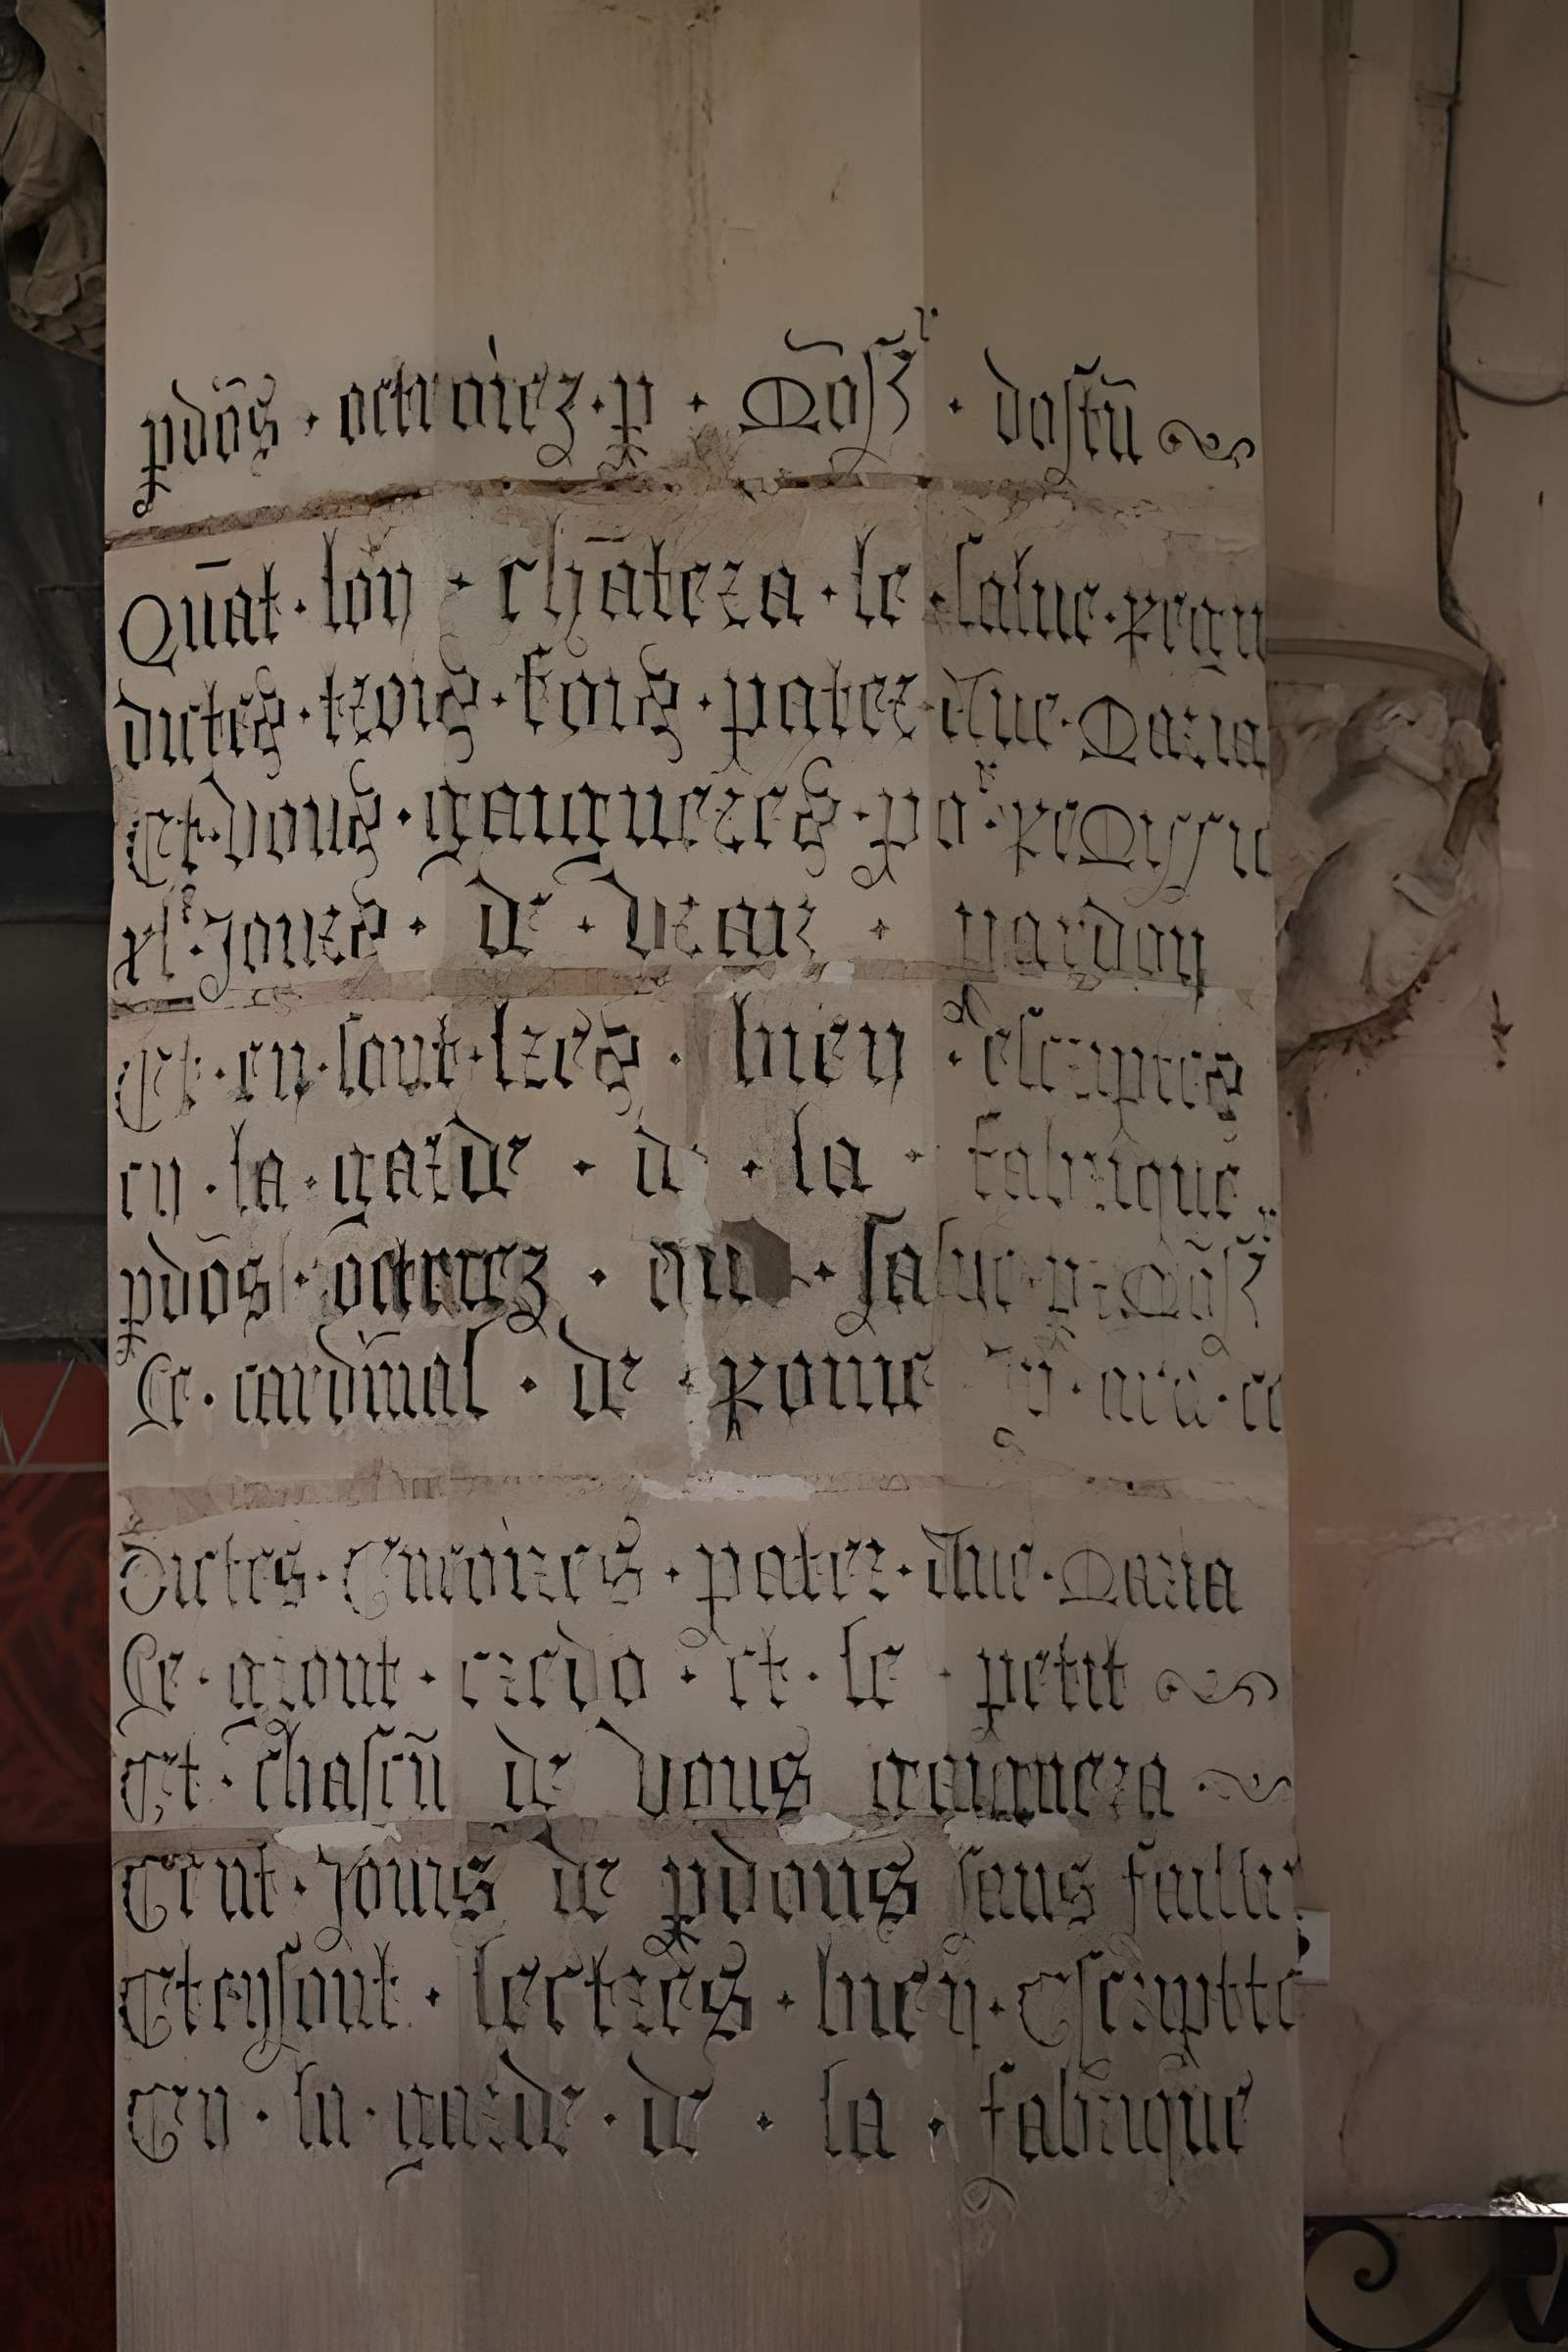 pdōs · octroiez · p · Mōsʒr · dostū
Quāt · lon · chātera · le · salue · regī
dictes · trois · fois · pater · Aue · Maria
Et · vous · gaigneres · po
xl · Jours · de · vray · pardon
Et · en · sont · lres · bien · escriptes
en · la · garde · de · la · fabrique
pdōs · octroiez · au · salue · p · Mōsʒr
Le · cardinal · de · Rome
Dictes · Encoires · pater · Aue · Maria
Le · grant · credo · et · le · petit
Et · chascū de vous gaignera
Cent · Jours de pdons sans faillir
Et en sont · lectres · bien · Escriptte
En · la · garde · de · la · fabrique